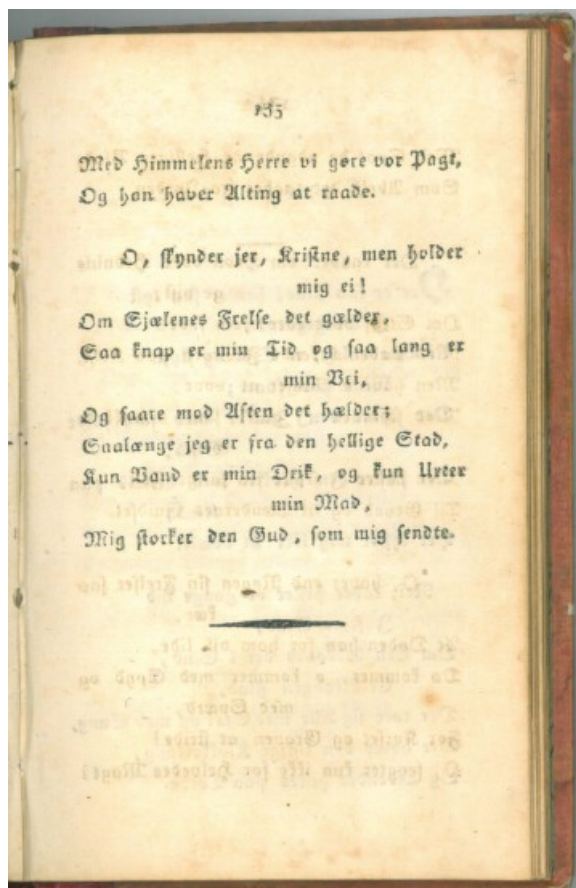 135
Med Himmelens Herre vi gøre vor Pagt,
Og han haver Alting at raade.
O, skynder jer, Kristne, men holder
mig ei!
Om Sjælenes Frelse det gælder,
Saa knap er min Tid og saa lang er
min Vei,
Og saare mod Aften det hælder;
Saalænge jeg er fra den hellige Stad,
Kun Vand er min Drik, og kun Urter
min Mad,
Mig storker den Gud, som mig sendte.